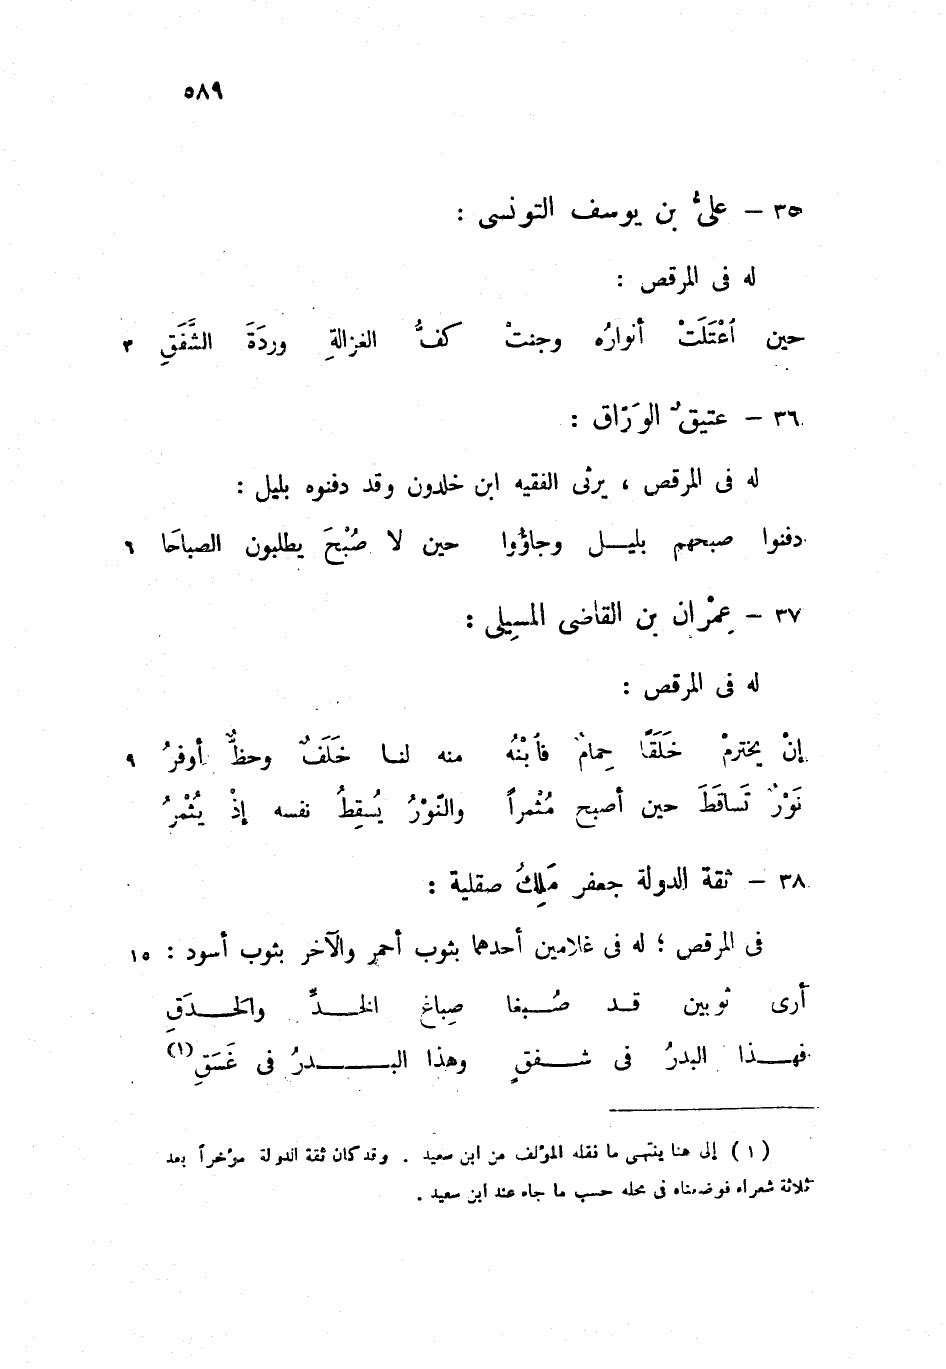 ٥٨٩
٣٥ – علىُّ بن يوسف التونسى :
له فى المرقص :
حين ٱعْتَلَتْ أنوارُه وجنتْ كفُّ الغزالةِ وردَةَ الشَّفَقِ ٣
٣٦ – عتيقٌ الورّاق :
له فى المرقص ، يرثى الفقيه ابن خلدون وقد دفنوه بليل :
دفنوا صبحهم بليـل وجاؤُوا حين لا صُبْحَ يطلبون الصباحَا ٦
٣٧ – عِمْران بن القاضى المسِيلى :
له فى المرقص :
إنْ يخترمْ خَلَفًا حِمامٌ فٱبْنُه منه لنـا خَلَفٌ وحظٌّ أوفرُ ٩
نَوْرٌ تَساقَطَ حين أصبح مُثْمراً والنَّوْرُ يُسقِطُ نفسه إذْ يُثْمرُ
٣٨ – ثقة الدولة جعفر مَلِكُ صقلية :
فى المرقص ؛ له فى غلامين أحدهما بثوب أحمر والآخر بثوب أسود : ١٥
أرى ثوبين قـد صُـبغا صِباغ الخـدِّ والحَـدَقِ
فهـذا البدرُ فى شـفقٍ وهذا البـدرُ فى غَسَقِ(١)
(١) إلى هنا ينتهى ما نقله المؤلف من ابن سعيد . وقد كان ثقة الدولة مؤخراً بعد
ثلاثة شعراء فوضعناه فى محله حسب ما جاء عند ابن سعيد .